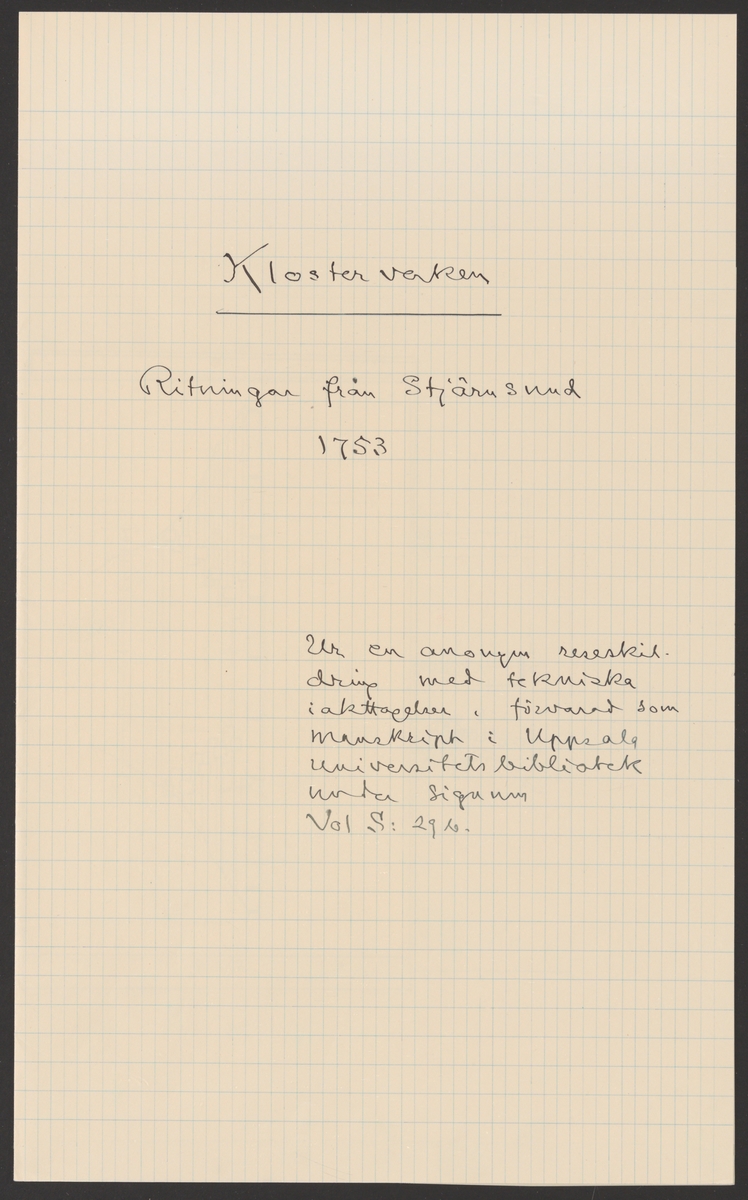 Klosterverken
Ritningar från Stjärnsund
1753
Ur en anonym reseskil-
dring med tekniska
iakttagelser, förvarad som
manskript i Uppsala
Universitetsbibliotek
under signum
Vol S: 29 b.